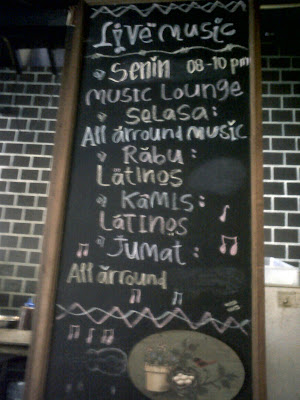 Live music
Senin 08-10 pm
music Lounge
Selasa:
All árround music
Rábu:
Lätinos
Kámis:
Látinos
Jumat:
All árround